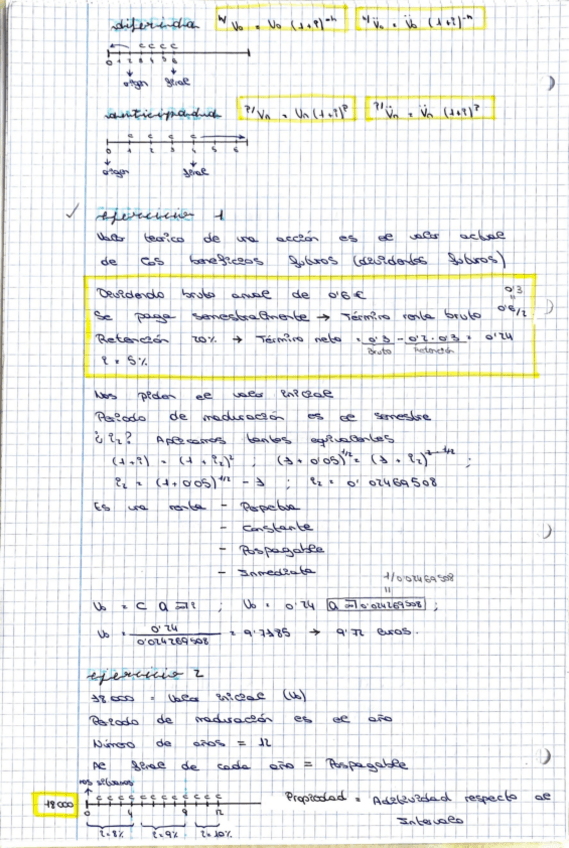 diferida h/ V₀ = V₀ (1+i)⁻ʰ h/ V̈₀ = V̈₀ (1+i)⁻ʰ
c c c c
0 1 2 3 4 5 6
origen final
anticipada P/ Vn = Vn (1+i)ᴾ P/ V̈n = V̈n (1+i)ᴾ
c c c c
0 1 2 3 4 5 6
origen final
ejercicio 1
Valor teórico de una acción es el valor actual
de los beneficios futuros (dividendos futuros)
Devidendo bruto anual de 0'6 €
0'3
=
Se paga semestralmente → Término renta bruto 0'6/2
Retención 20% → Término neto = 0'3 - 0'2 · 0'3 = 0'24
Bruto Retención
i = 5%
Nos piden el valor inicial
Periodo de maduración es el semestre
¿i₂? Aplicamos tantos equivalentes
(1+i) = (1+i₂)² ; (1+0'05)^1/2 = (1+i₂)^2·1/2 ;
i₂ = (1+0'05)^1/2 - 1 ; i₂ = 0'02469508
Es una renta - Perpetua
- Constante
- Pospagable
- Inmediata
1/0'02469508
=
V₀ = C a ∞ i ; V₀ = 0'24 a ∞ 0'02469508 ;
V₀ = 0'24 / 0'024269508 = 9'7185 → 9'72 euros.
ejercicio 2
18000 = Valor inicial (V₀)
Periodo de maduración es el año
Número de años = 12
Al final de cada año = Pospagable
nos situamos
c c c c c c c c c c c c
18000 0 4 9 12 Propiedad = Aditividad respecto al
Intervalo
i=8% i=9% i=10%